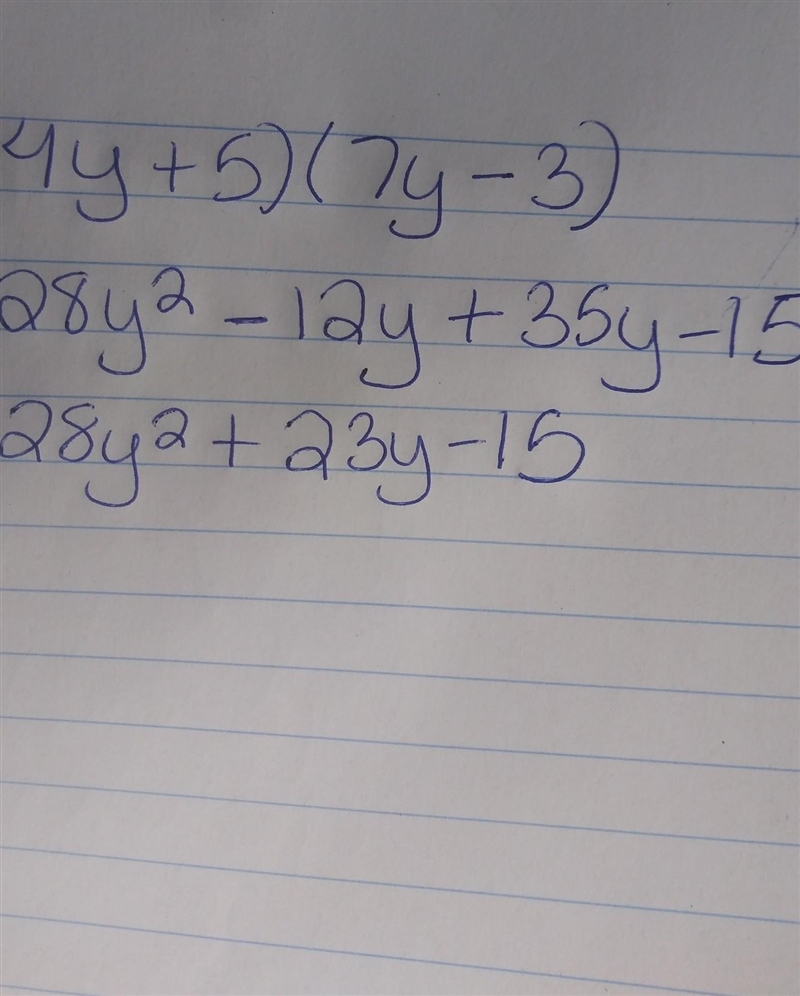 4y + 5)(7y - 3)
28y² - 12y + 35y - 15
28y² + 23y - 15